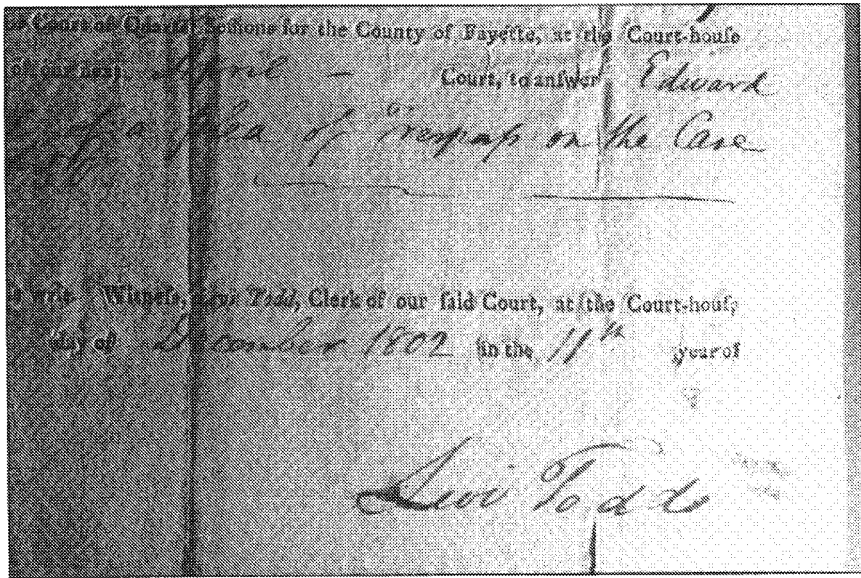 Court of Quarter Seſſions for the County of Fayette, at the Court-houſe
of our next April — Court, to anſwer Edward
of a plea of Treſpaſs on the Caſe
writ. Witneſs, Levi Todd, Clerk of our ſaid Court, at the Court-houſe
day of December 1802 in the 11th year of
Levi Todd